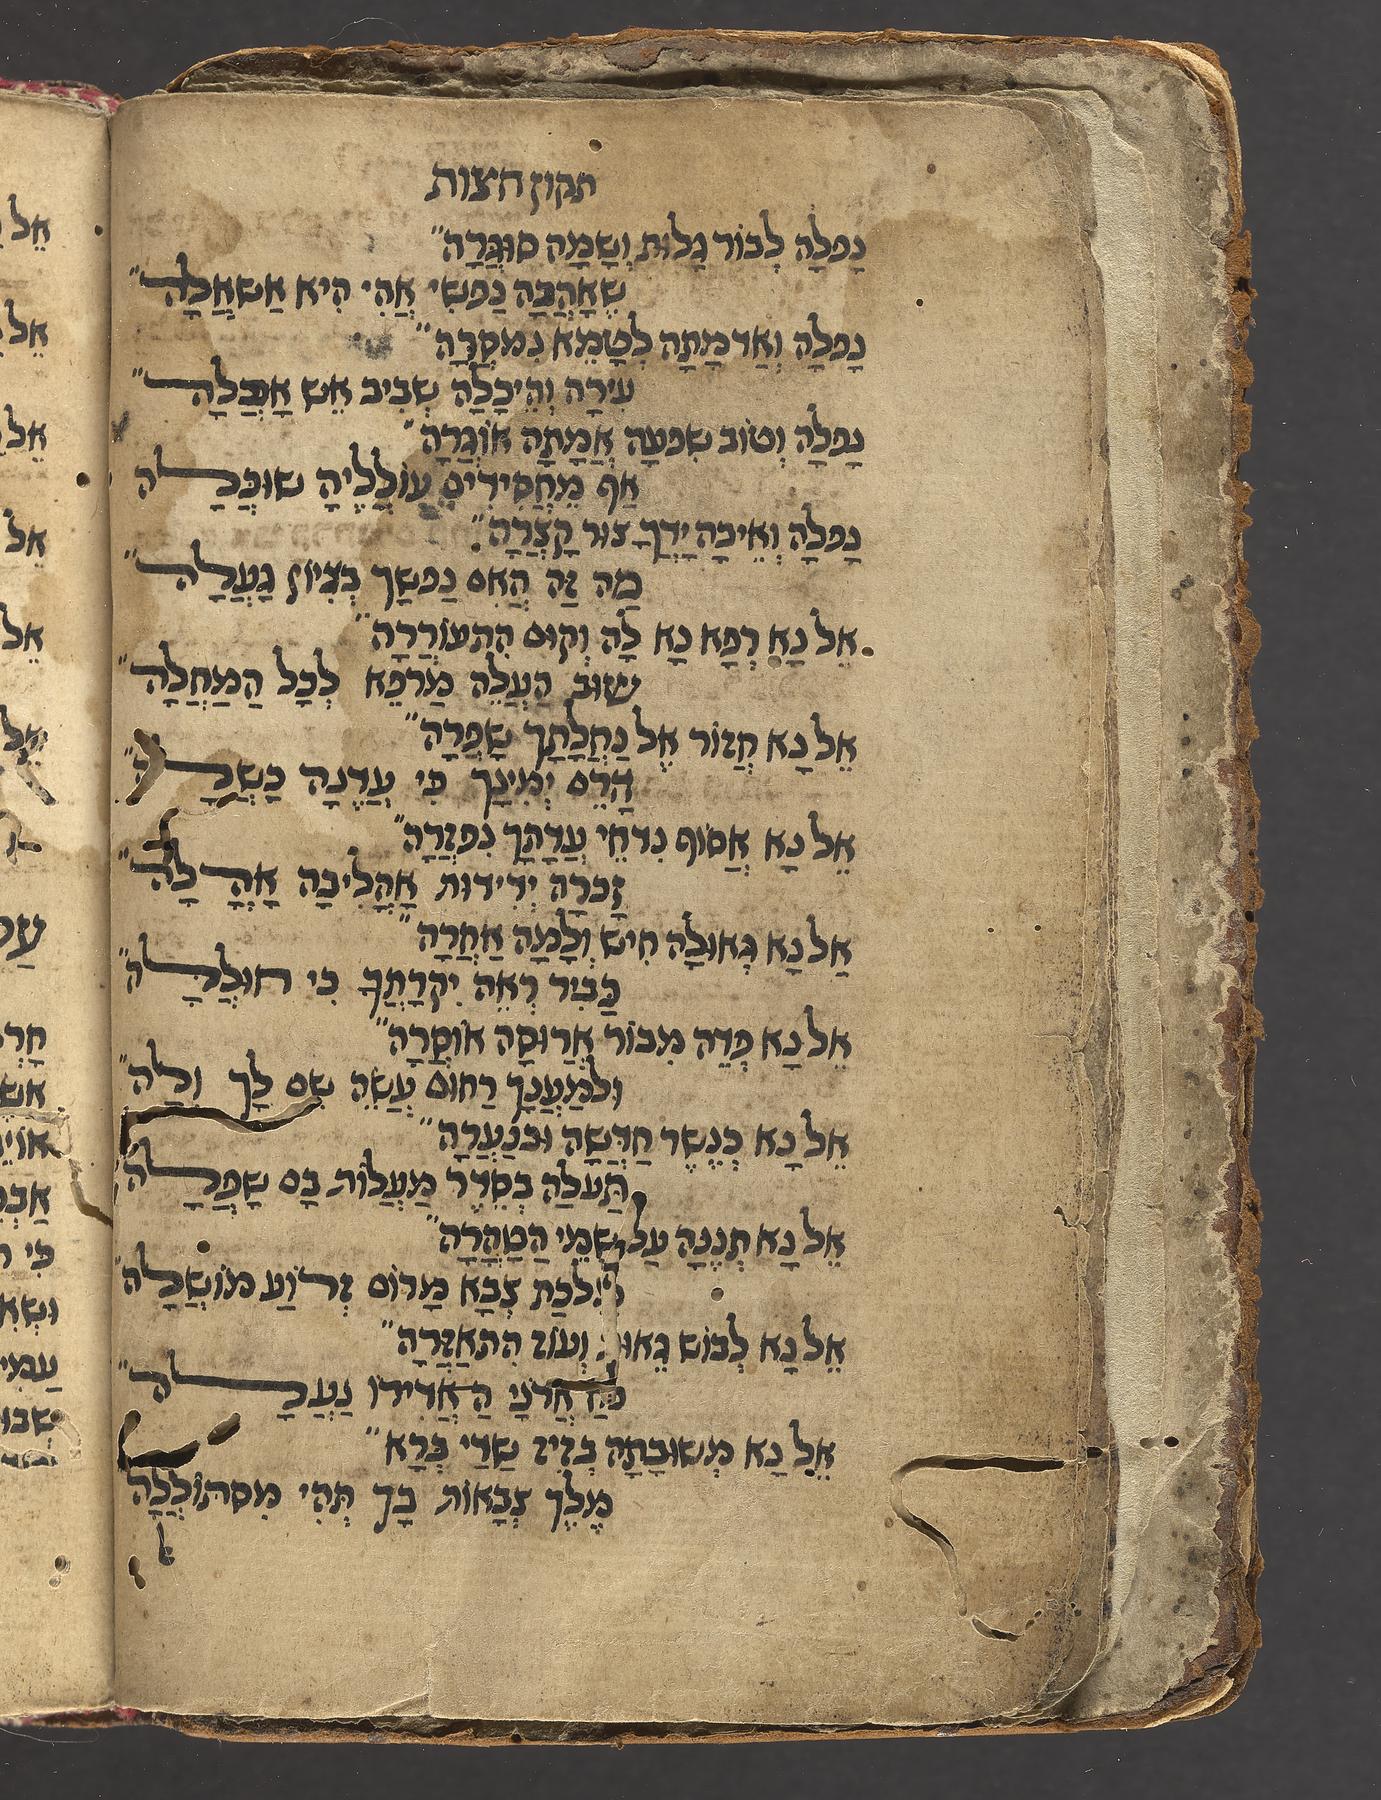 תקון חצות
נָפלָה לְבוֹר גָלוּת וְשָמָה סוּגֲרָה
שֶאָהֲבָה נַפשִי אֲהִי הִיא אַשאֲלָה
נָפלָה וְאַדמָתָה לְטָמֵא נִמסֲרָה
עִירָה וְהֵיכָלָה שְבִיב אֵש אָכֲלָה
נָפלָה וְטוֹב שִפעָה אֲמָתָה אוֹגֲרָה
אַף מֵחֲסִידִים עוֹלֲלֶיהָ שוּכֲלָה
נָפלָה וְאֵיכָה יָדְךָ צוּר קָצֲרָה
מַה זֶה הֲאִם נַפשָך בְצִיוֹן גָעֲלָה
אֵל נָא רְפָא נָא לָה וְקוּם הִתעוֹרֲרָה
שוּב הַעֲלֵה מַרפֵא לְכָל הַמַחֲלָה
אֵל נָא חֲזוֹר אֶל נַחֲלָתָך שָפֲרָה
הָרֵם יְמִינָך כִי עֲדֶנָה כָשֲלָה
אֵל נָא אֲסוֹף נִדחֵי עֲדָתָך נִפזֲרָה
זָכרָה יְדִידוּת אָהֳלִיבָה אָהֳלָה
אֵל נָא גְאוּלָה חִיש וְלָמָה אַחֲרָה
כַבִיר רְאֵה יִקרָתְךָ כִי חוּלֲלָה
אֵל נָא פְדֵה מִבוֹר אֲרוּסָה אוֹסֲרָה
וּלמַעֲנָך רַחוּם עֲשֵה שֵם לָך וְלָה
אֵל נָא כְנֶשֶר חַדֲשָה וּבנַעֲרָה
תַעלֵה בְסֵדֶר מַעֲלוֹת בָם שָפֲלָה
אֵל נָא תְנֶנָה עַל שְמֵי הַטָהֳרָה
לכַת צְבָא מָרוֹם זְרוֹעַ מוֹשֲלָה
אֵל נָא לְבוֹש גֵאוּת וְעוֹז הִתאַזֲרָה
אֲדֹנָי הַאֲדִירוֹ נַעֲלָה
אֵל נָא מְשוּבָתָה בְזִיז שַדַי בְרָא
מֶלֶך צְבָאוֹת בָך תְהִי מִסתוֹלֲלָה